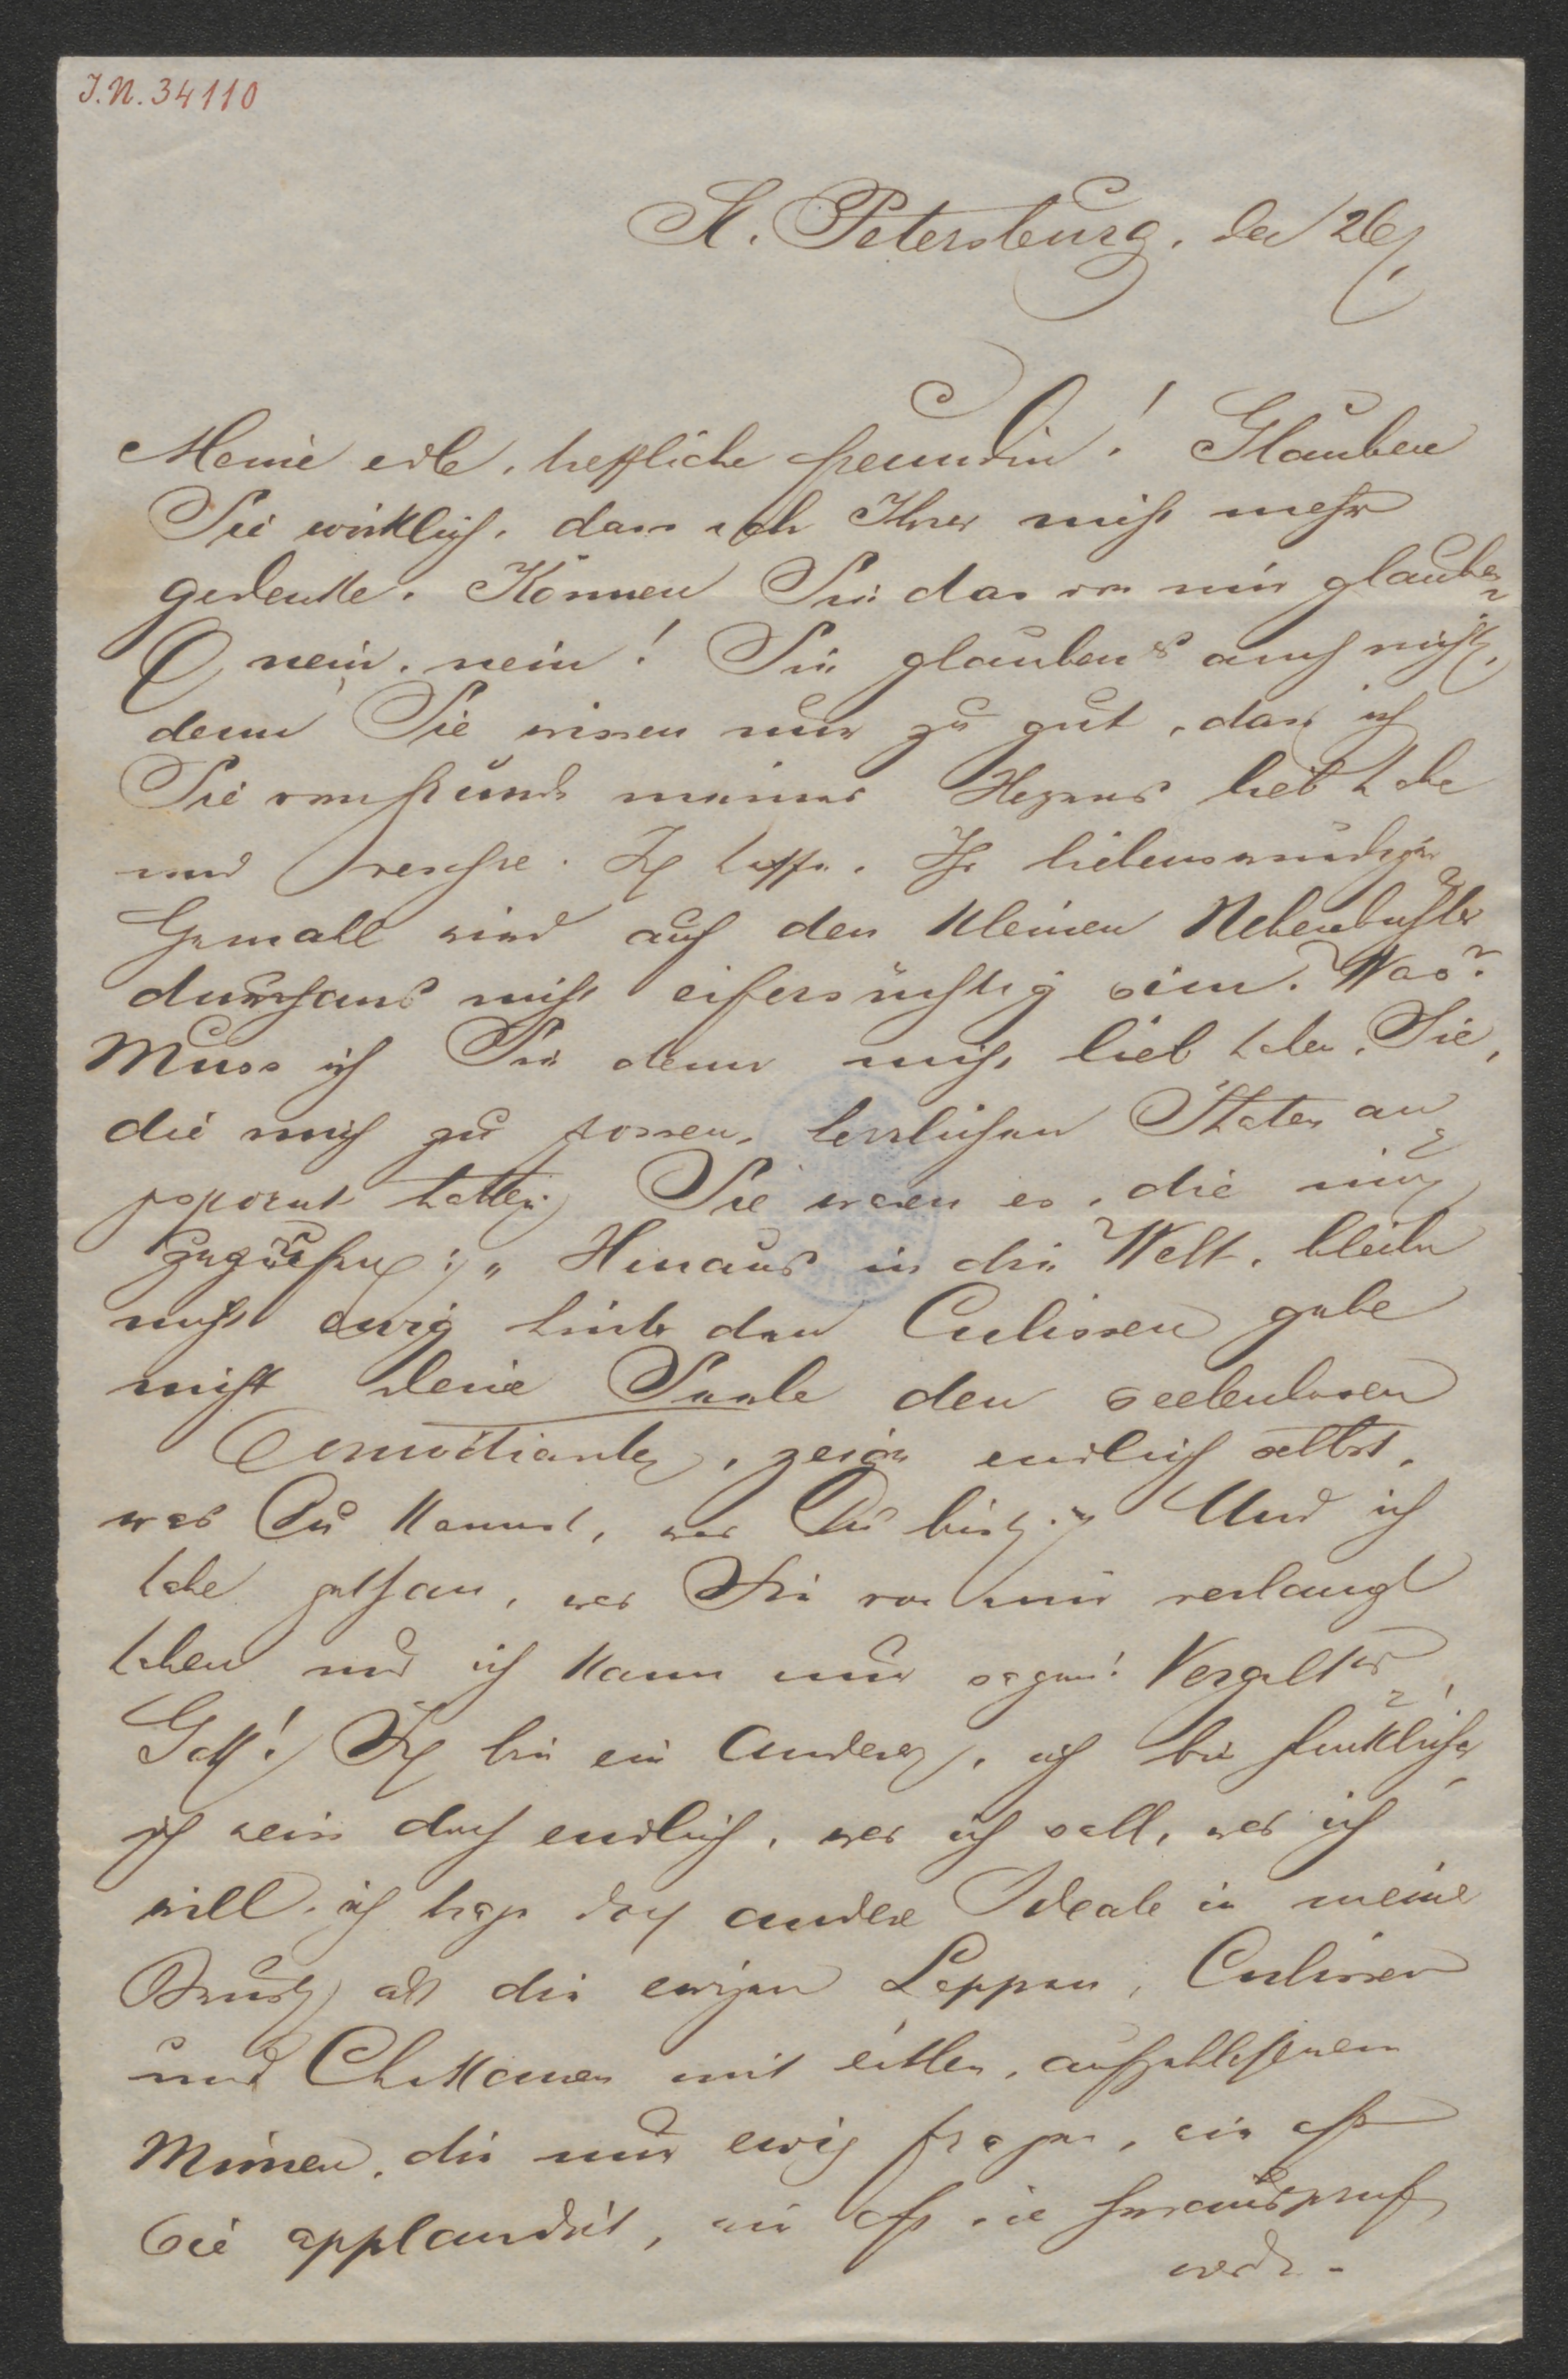 I.N. 34110
St. Petersburg, den 26/
Meine edle, treffliche Freundin! Glauben
Sie wirklich, dass ich Ihrer nicht mehr
gedenke. Können Sie das von mir glauben?
O nein, nein! Sie glaubens auch nicht,
denn Sie wissen nur zu gut, dass ich
Sie vom Grunde meines Herzens lieb habe
und verehre. Ich hoffe, Ihr liebenswürdiger
Gemahl wird auf den kleinen Nebenbuhler
durchaus nicht eifersüchtig sein. Was?
Muss ich Sie denn nicht lieb haben, Sie,
die mich zu grossen, herrlichen Thaten an-
gespornt hatten. Sie waren es, die mir
zugerufen: „Hinaus in die Welt, bleibe
nicht ewig hinter den Culissen gebe
nicht Deine Seele den seelenlosen
Comödianten, zeige endlich selbst,
was Du kannst, wer Du bist." Und ich
habe gethan, was Sie von mir verlangt
haben und ich kann nur sagen: Vergelt's
Gott! Ich bin ein Anderer, ich bin glücklicher,
ich weiss doch endlich, was ich soll, was ich
will, ich trage doch andere Ideale in meiner
Brust, als die ewigen Lappen, Culissen
und Chikanen mit eitlen, aufgeblasenen
Mimen, die nur ewig fragen, wie oft
sie applaudirt, wie oft sie herausgerufen
werden -